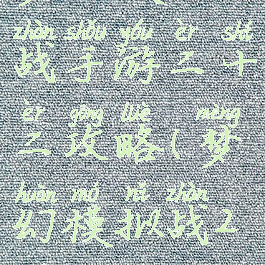 zhàn shǒu yóu èr shí
战手游二十
èr gōng lüè mèng
二攻略(梦
huàn mó nǐ zhàn
幻模拟战2